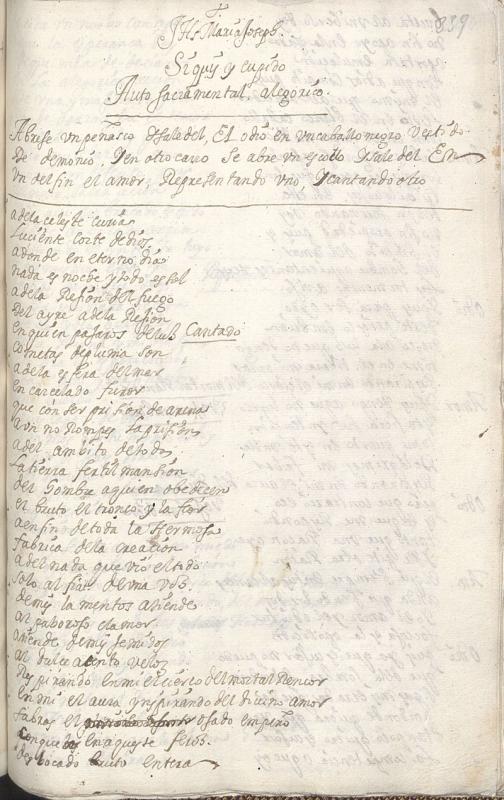 839
JHS. Maria Joseph.
Siquis y cupido
Auto sacramental, alegorico.
Abrese un peñasco y sale del, El odio en un caballo negro vestido
De demonio, y en otro carro se abre un escollo y sale del En
Un delfin el amor, Representando uno, y cantando otro
a de la celeste curia
luciente corte de dios
adonde en eterno dia
nada es noche y todo es sol
a de la Rejion del fuego
Del ayre a de la Rejion
en quien pajaros de luz Cantado
cometas de pluma son
a de la esfera del mar
encarcelado furor
que con ser prision de arena
aun no Rompes la prision
a del ambito de todos
la tierra fertil mansion
del hombre a quien obedecen
el bruto el tronco y la flor
a en fin de toda la Hermosa
fabrica de la creacion
a del nada que vio el todo
solo al fiat de una voz.
de mis lamentos atiende
al pavoroso clamor
atiende de mis jemidos
al dulce acento veloz
Respirando en mi el cierco del mortal Rencor
En mi el aura inspirando del divino amor
sabras el osado empeño
con que en aqueste feroz
desbocado bruto entera